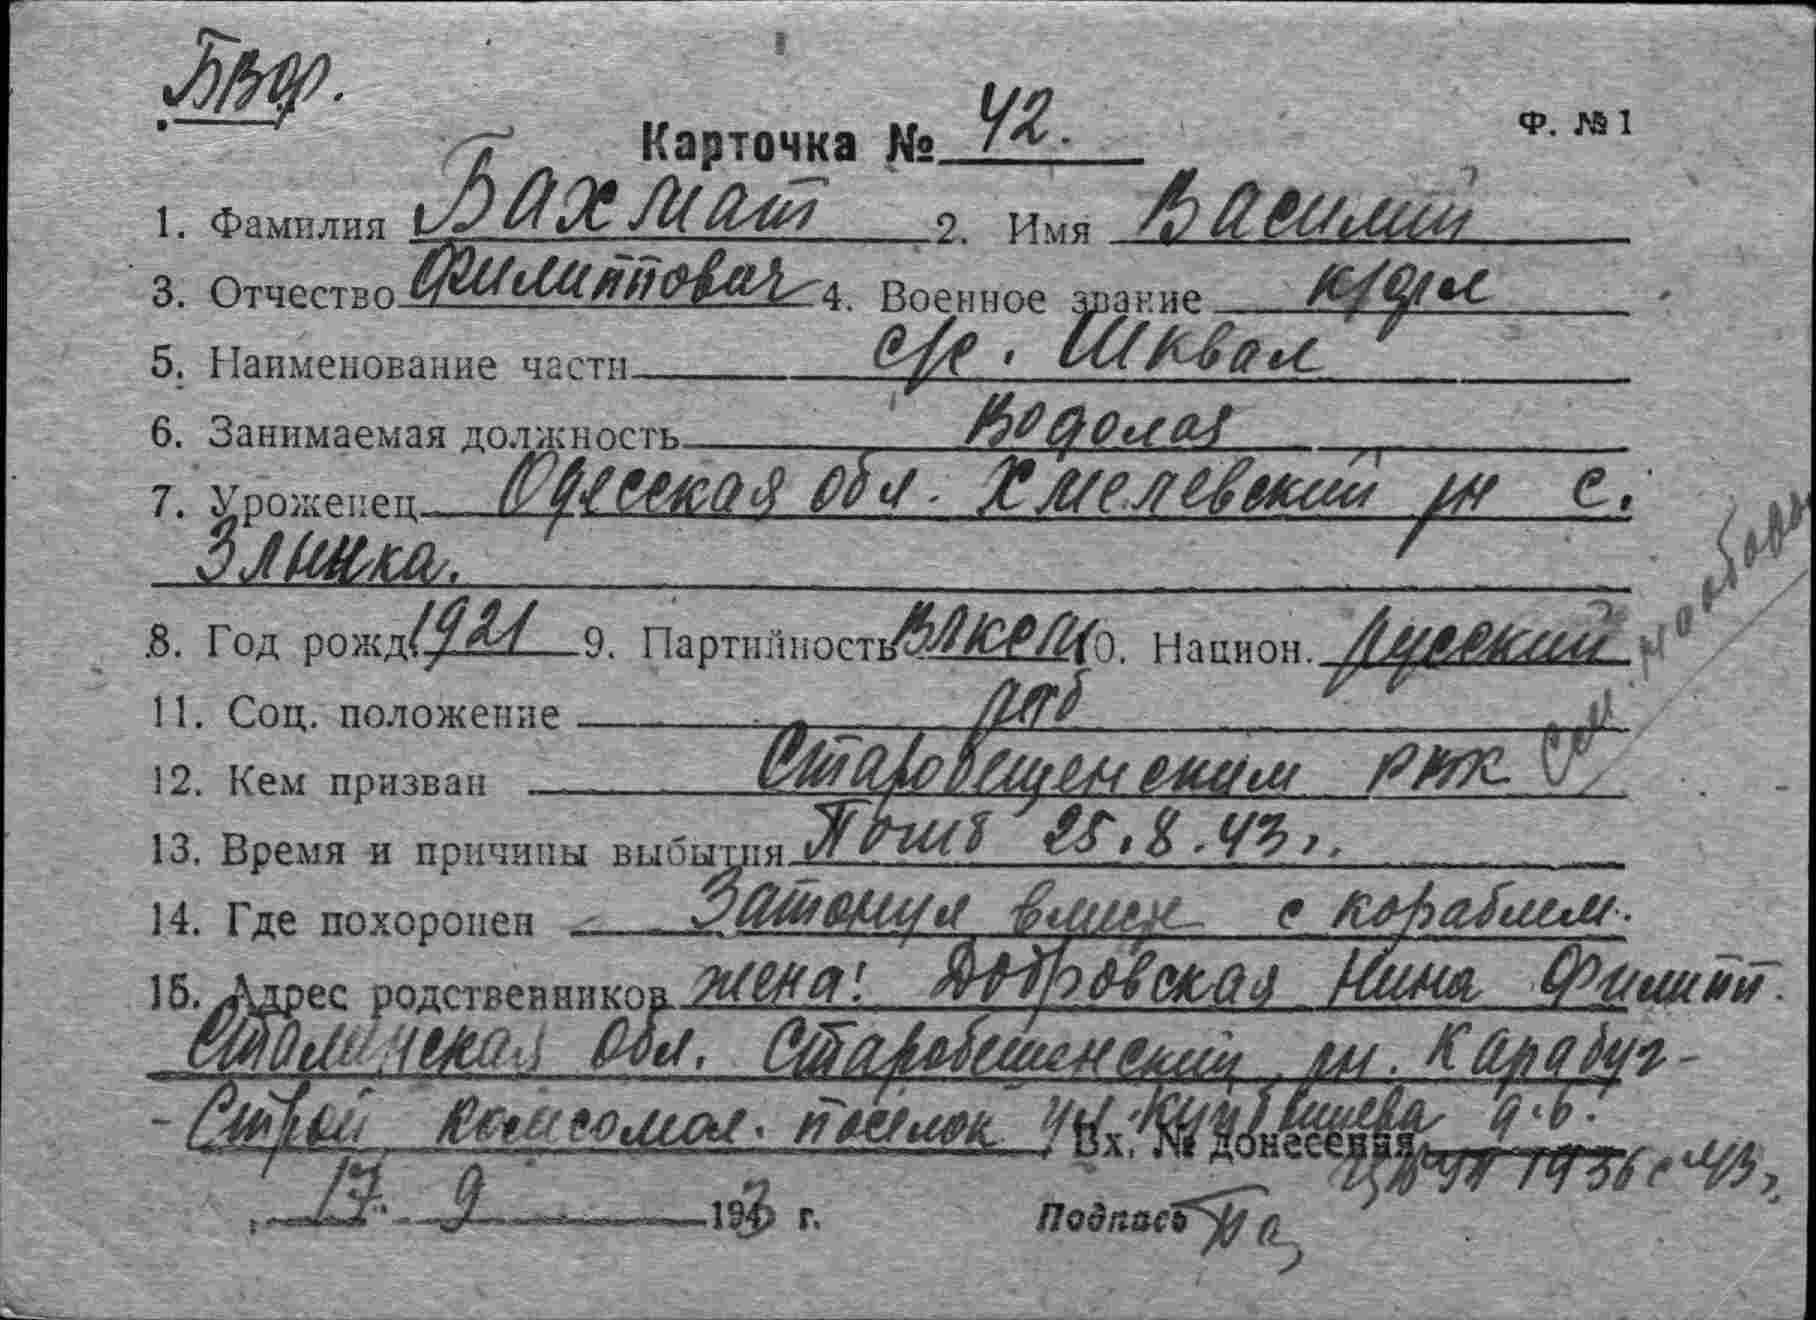 БВФ.
Карточка № 42.
Ф. № 1
1. Фамилия Бахмат 2. Имя Василий
3. Отчество Филиппович 4. Военное звание к/фл
5. Наименование части с/к. Шквал
6. Занимаемая должность Водолаз
7. Уроженец Одесская обл. Хмелевский рн с.
Злынка.
8. Год рожд. 1921 9. Партийность ВЛКСМ 10. Национ. русский
11. Соц. положение раб
12. Кем призван Старобешенским РВК
13. Время и причины выбытия Погиб 25.8.43 г.
14. Где похоронен Затонул вместе с кораблем.
15. Адрес родственников жена: Добровская Нина Филипп.
Сталинская обл. Старобешенский рн. Карабуг-
-Строй комсомол. поселок ул. Куйбышева д.6.
Вх. № донесения 1936с 43 г.
17. 9 1943 г. Подпись
См.